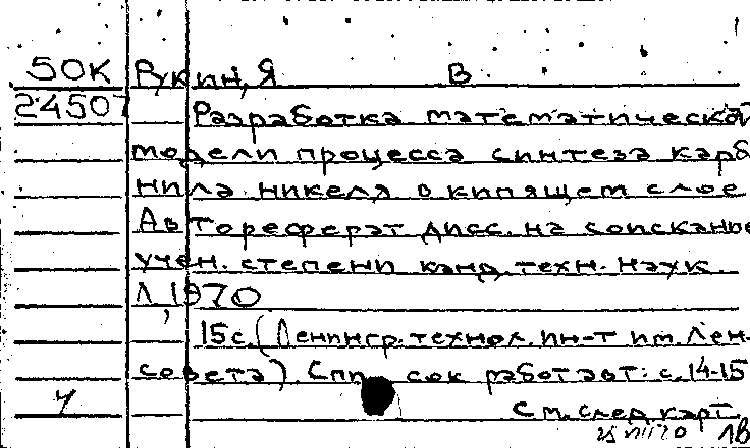 50К Рукин, Я В
24507 Разработка математической
модели процесса синтеза карбо
нила никеля в кипящем слое
Автореферат дисс. на соискание
учен. степени канд. техн. наук.
Л, 1970
15с. (Ленингр. технол. ин-т им. Лен-
совета). Список работ авт: с. 14-15
См. след карт.
18